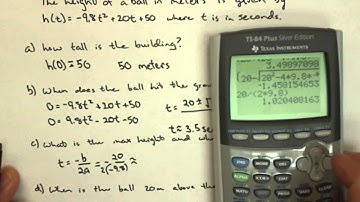 The height of a ball in meters is given by
h(t)=-9.8t²+20t+50 where t is in seconds.
a) how tall is the building?
h(0)=50 50 meters
b) When does the ball hit the gro
0=-9.8t²+20t+50
0=9.8t²-20t-50
t=20±√
t≈3.5 se
c) What is the max height and wh
t=-b/2a=-20/2(-9.8)≈
d) When is the ball 20m above th
TI-84 Plus Silver Edition
TEXAS INSTRUMENTS
3.49897098
(20-√(20²-4*9.8*
-1.458154653
20/(2*9.8)
1.020408163